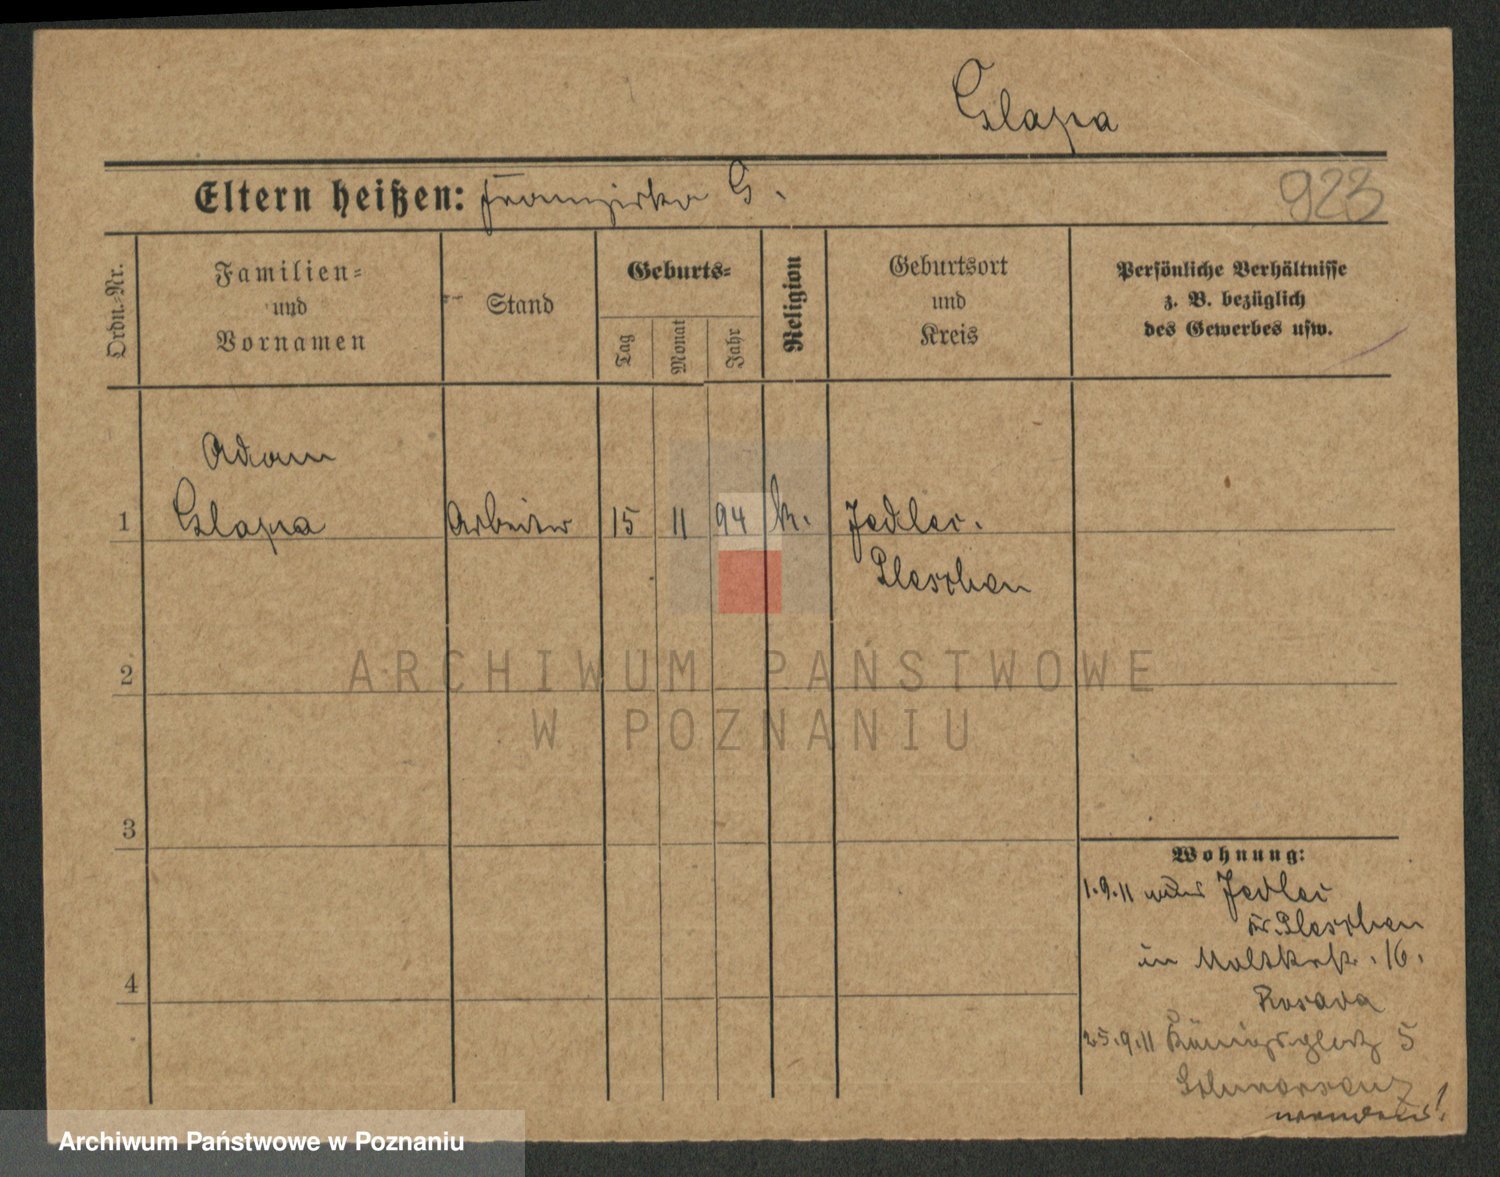 Glapa
Eltern heißen: Franziska G.
923
Ordn.=Nr.
Familien=
und
Vornamen
Stand
Geburts=
Tag
Monat
Jahr
Religion
Geburtsort
und
Kreis
Persönliche Verhältnisse
z. B. bezüglich
des Gewerbes usw.
Adam
1 Glapa Arbeiter 15 11 94 k. Jedlec.
Pleschen
2
ARCHIWUM PAŃSTWOWE
W POZNANIU
3
Wohnung:
1.9.11 Jedlec
Kr. Pleschen
in Moltkestr. 16.
4
25.9.11 Königsplatz 5
wenden!
Archiwum Państwowe w Poznaniu